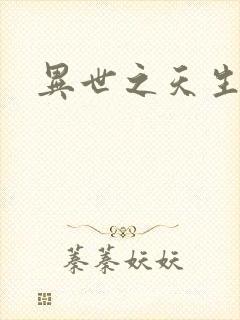 異世之天生
蓁蓁妖妖